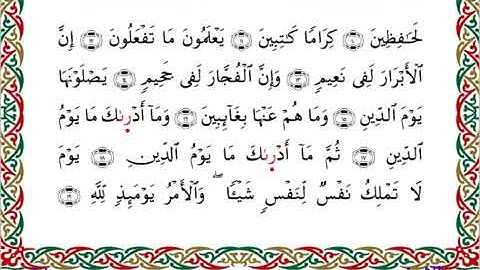 لَحَـٰفِظِينَ ۝١٠ كِرَامٗا كَـٰتِبِينَ ۝١١ يَعۡلَمُونَ مَا تَفۡعَلُونَ ۝١٢ إِنَّ
ٱلۡأَبۡرَارَ لَفِي نَعِيمٖ ۝١٣ وَإِنَّ ٱلۡفُجَّارَ لَفِي جَحِيمٖ ۝١٤ يَصۡلَوۡنَهَا
يَوۡمَ ٱلدِّينِ ۝١٥ وَمَا هُمۡ عَنۡهَا بِغَآئِبِينَ ۝١٦ وَمَآ أَدۡرَىٰكَ مَا يَوۡمُ
ٱلدِّينِ ۝١٧ ثُمَّ مَآ أَدۡرَىٰكَ مَا يَوۡمُ ٱلدِّينِ ۝١٨ يَوۡمَ
لَا تَمۡلِكُ نَفۡسٞ لِّنَفۡسٖ شَيۡـٔٗاۖ وَٱلۡأَمۡرُ يَوۡمَئِذٖ لِّلَّهِ ۝١٩